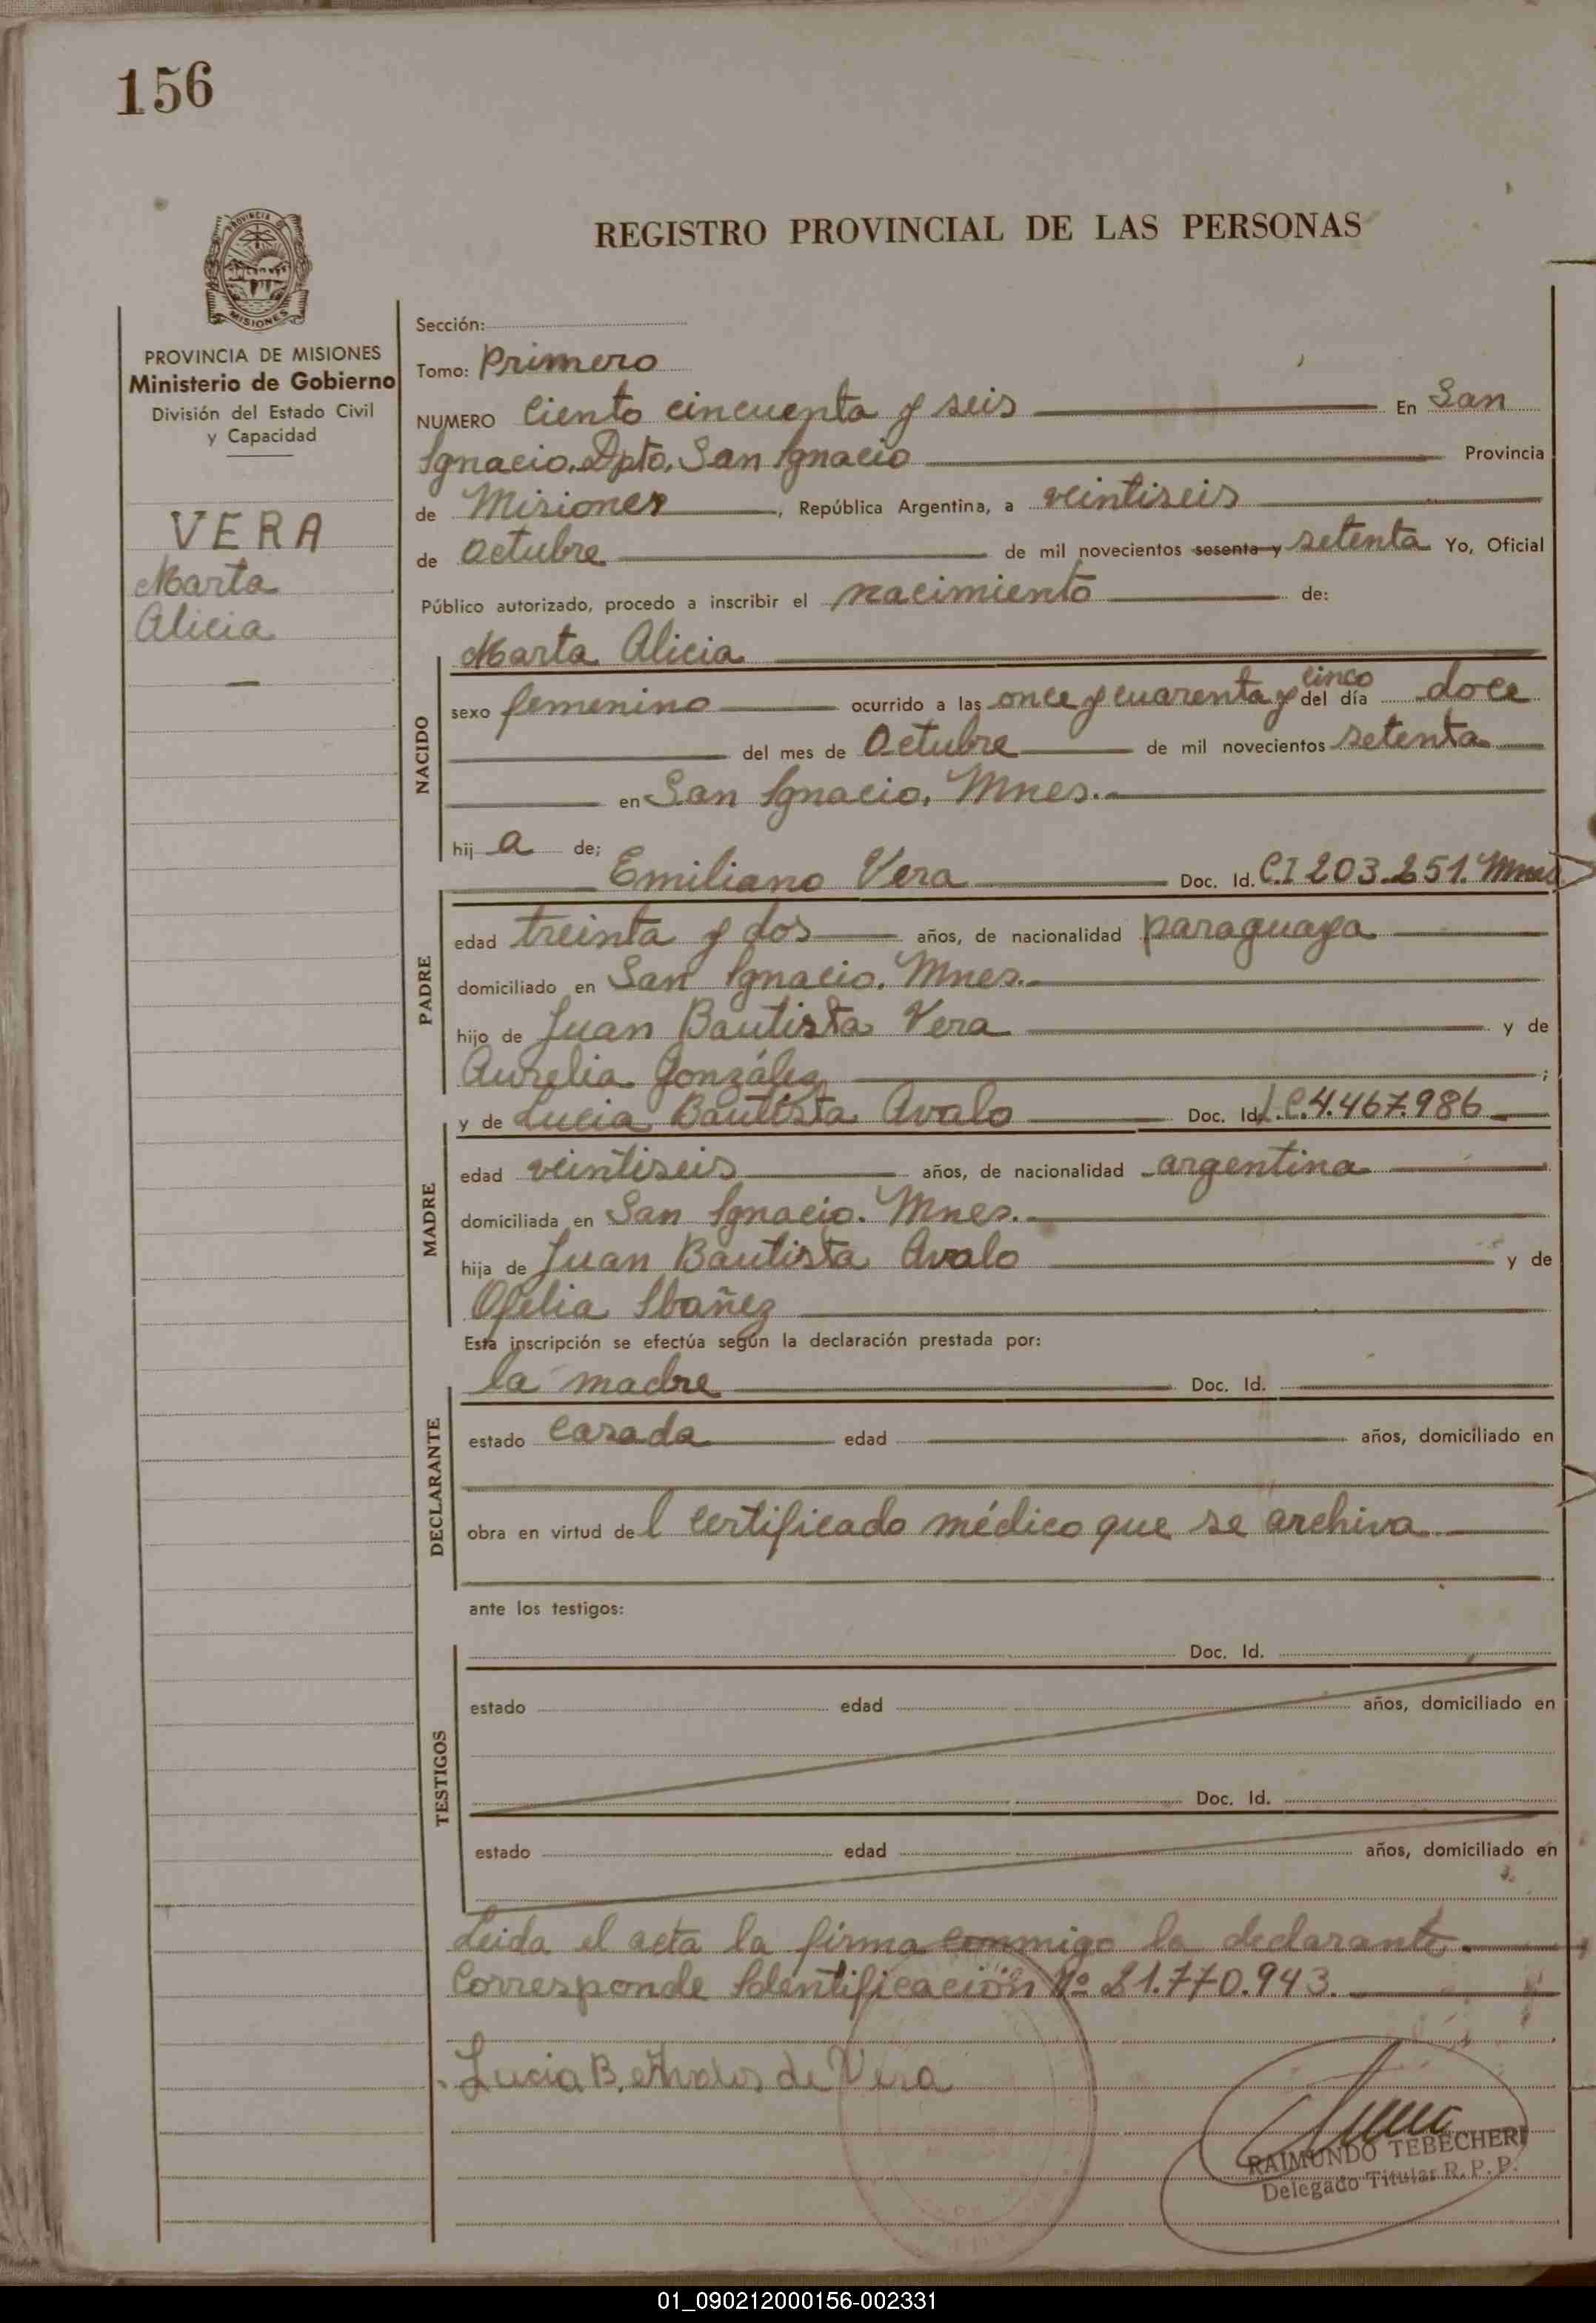 156
PROVINCIA DE
MISIONES
PROVINCIA DE MISIONES
Ministerio de Gobierno
División del Estado Civil
y Capacidad
VERA
Marta
Alicia
REGISTRO PROVINCIAL DE LAS PERSONAS
Sección:
Tomo: Primero
NUMERO Ciento cincuenta y seis En San
Ignacio. Dpto. San Ignacio Provincia
de Misiones, República Argentina, a veintiseis
de Octubre de mil novecientos sesenta y setenta Yo, Oficial
Público autorizado, procedo a inscribir el nacimiento de:
Marta Alicia
NACIDO
sexo femenino ocurrido a las once y cuarenta y cinco del día doce
del mes de Octubre de mil novecientos setenta
en San Ignacio. Mnes.
hija de;
Emiliano Vera Doc. Id. C.I 203.251. Mnes
PADRE
edad treinta y dos años, de nacionalidad paraguaya
domiciliado en San Ignacio. Mnes.
hijo de Juan Bautista Vera y de
Aurelia González ;
y de Lucia Bautista Avalo Doc. Id. L.C. 4.467.986
MADRE
edad veintiseis años, de nacionalidad argentina
domiciliada en San Ignacio. Mnes.
hija de Juan Bautista Avalo y de
Ofelia Ibañez
Esta inscripción se efectúa según la declaración prestada por:
la madre Doc. Id.
DECLARANTE
estado casada edad años, domiciliado en
obra en virtud del certificado médico que se archiva
ante los testigos:
TESTIGOS
Doc. Id.
estado edad años, domiciliado en
Doc. Id.
estado edad años, domiciliado en
Leida el acta la firma conmigo la declarante.
Corresponde Identificación Nº 21.770.943.
Lucia B. Avalos de Vera
RAIMUNDO TEBECHERI
Delegado Titular R. P. P.
01_090212000156-002331